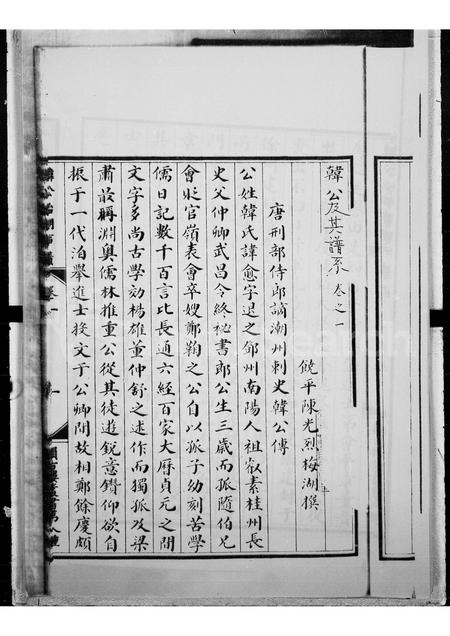 韓公及其譜系 卷之一
饒平陳光烈梅湖撰
唐刑部侍郎謫潮州刺史韓公傳
公姓韓氏諱愈字退之鄧州南陽人祖叡素桂州長
史父仲卿武昌令終祕書郎公生三歲而孤隨伯兄
會貶官嶺表會卒嫂鄭鞠之公自以孤子幼刻苦學
儒日記數千百言比長通六經百家大曆貞元之間
文字多尚古學効楊雄董仲舒之述作而獨孤及梁
肅最稱淵奥儒林推重公從其徒遊鋭意鑽仰欲自
振于一代洎舉進士投文于公卿間故相鄭餘慶頗
卷一
一